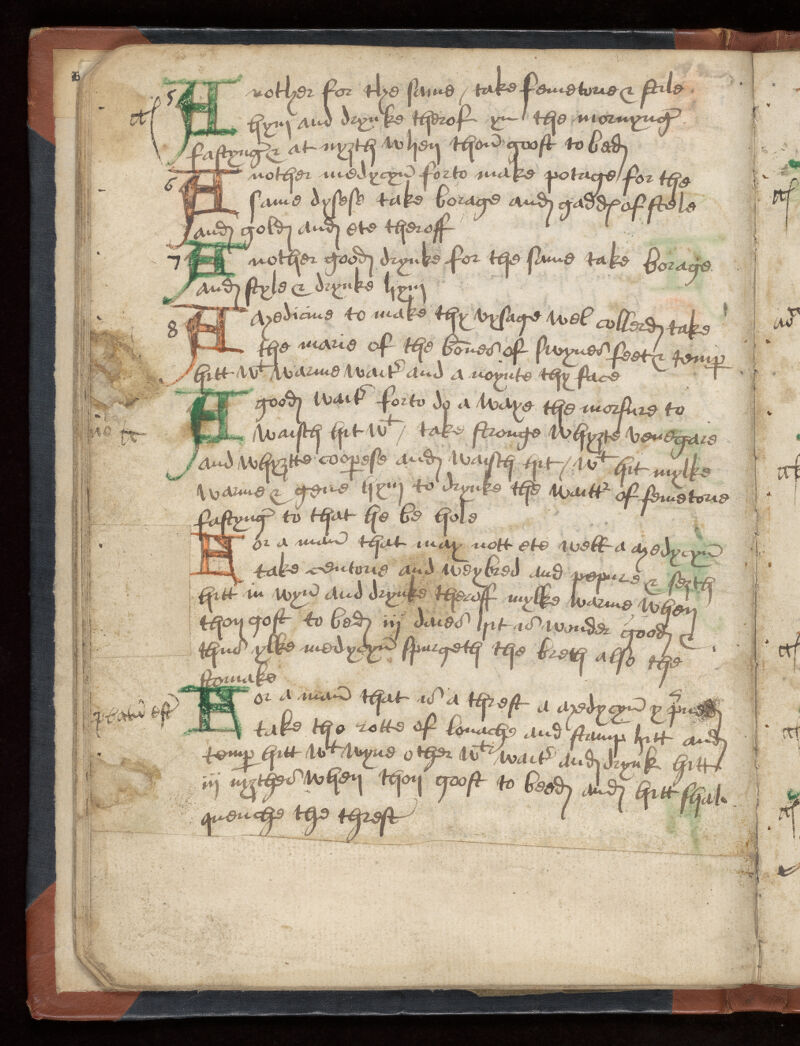 5 Another for the same / take femetorie & stile
hym and drynke therof yn the mornyng
fastyng & at nyzth when thou goost to bed
6 Another medycyn forto make potage for the
same dysese take borage and gaddes of stele
and gold and ete theroff
7 Another good drynke for the same take borage
and style & drynke hym
8 A Medicine to make thy vysage wel collerd take
the marie of the bones of swynes feet & temper
hitt wt warme water and a noynte thy face
A good water forto do a waye the morfure to
waisch hit wt / take stronge whyzte venegare
and whyztte cooperese and waisch hit / wt hit mylke
warme & geue hym to drynke the watter of femetorie
fastyng to that he be hole
For a man that may nott ete well a Medycyn
take centorie and weybred and pepure & sezth
hitt in wyn and drynke theroff mylke warme when
thou gost to bed iij daies hit is wonder good &
thus ylke medycyn spurgeth the breth also the
stomake
probatum est
For a man that is a threst a Medycyn y preued
take tho rotte of louache and stamp hitt and
temper hitt wt wyne other wt water and drynk hitt
iij nyzthes when thou goost to beed and hitt shal
quenche the threst